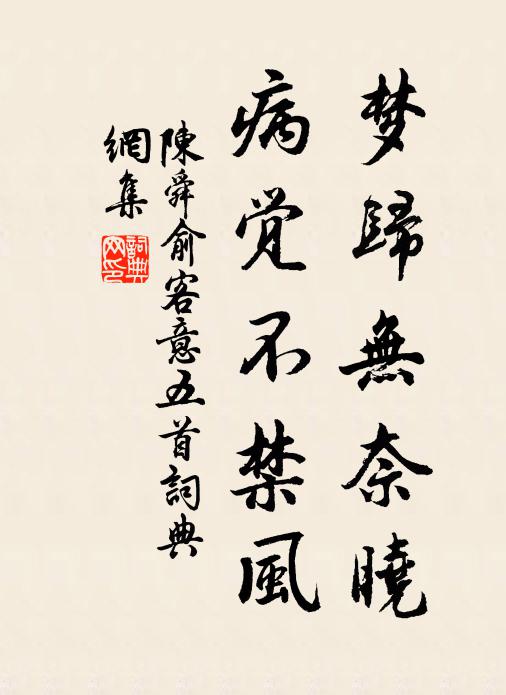 梦歸無奈曉
病觉不禁風
陳舜俞客意五首詞典
網集
詞典
网印